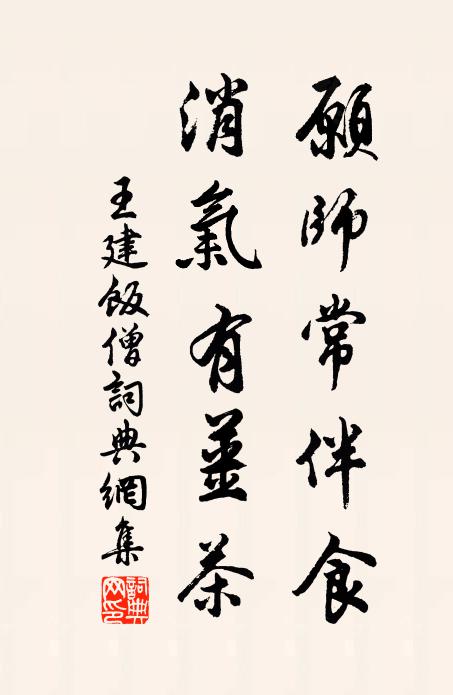 願師常伴食
消氣有薑茶
王建飯僧詞典網集
詞典網印